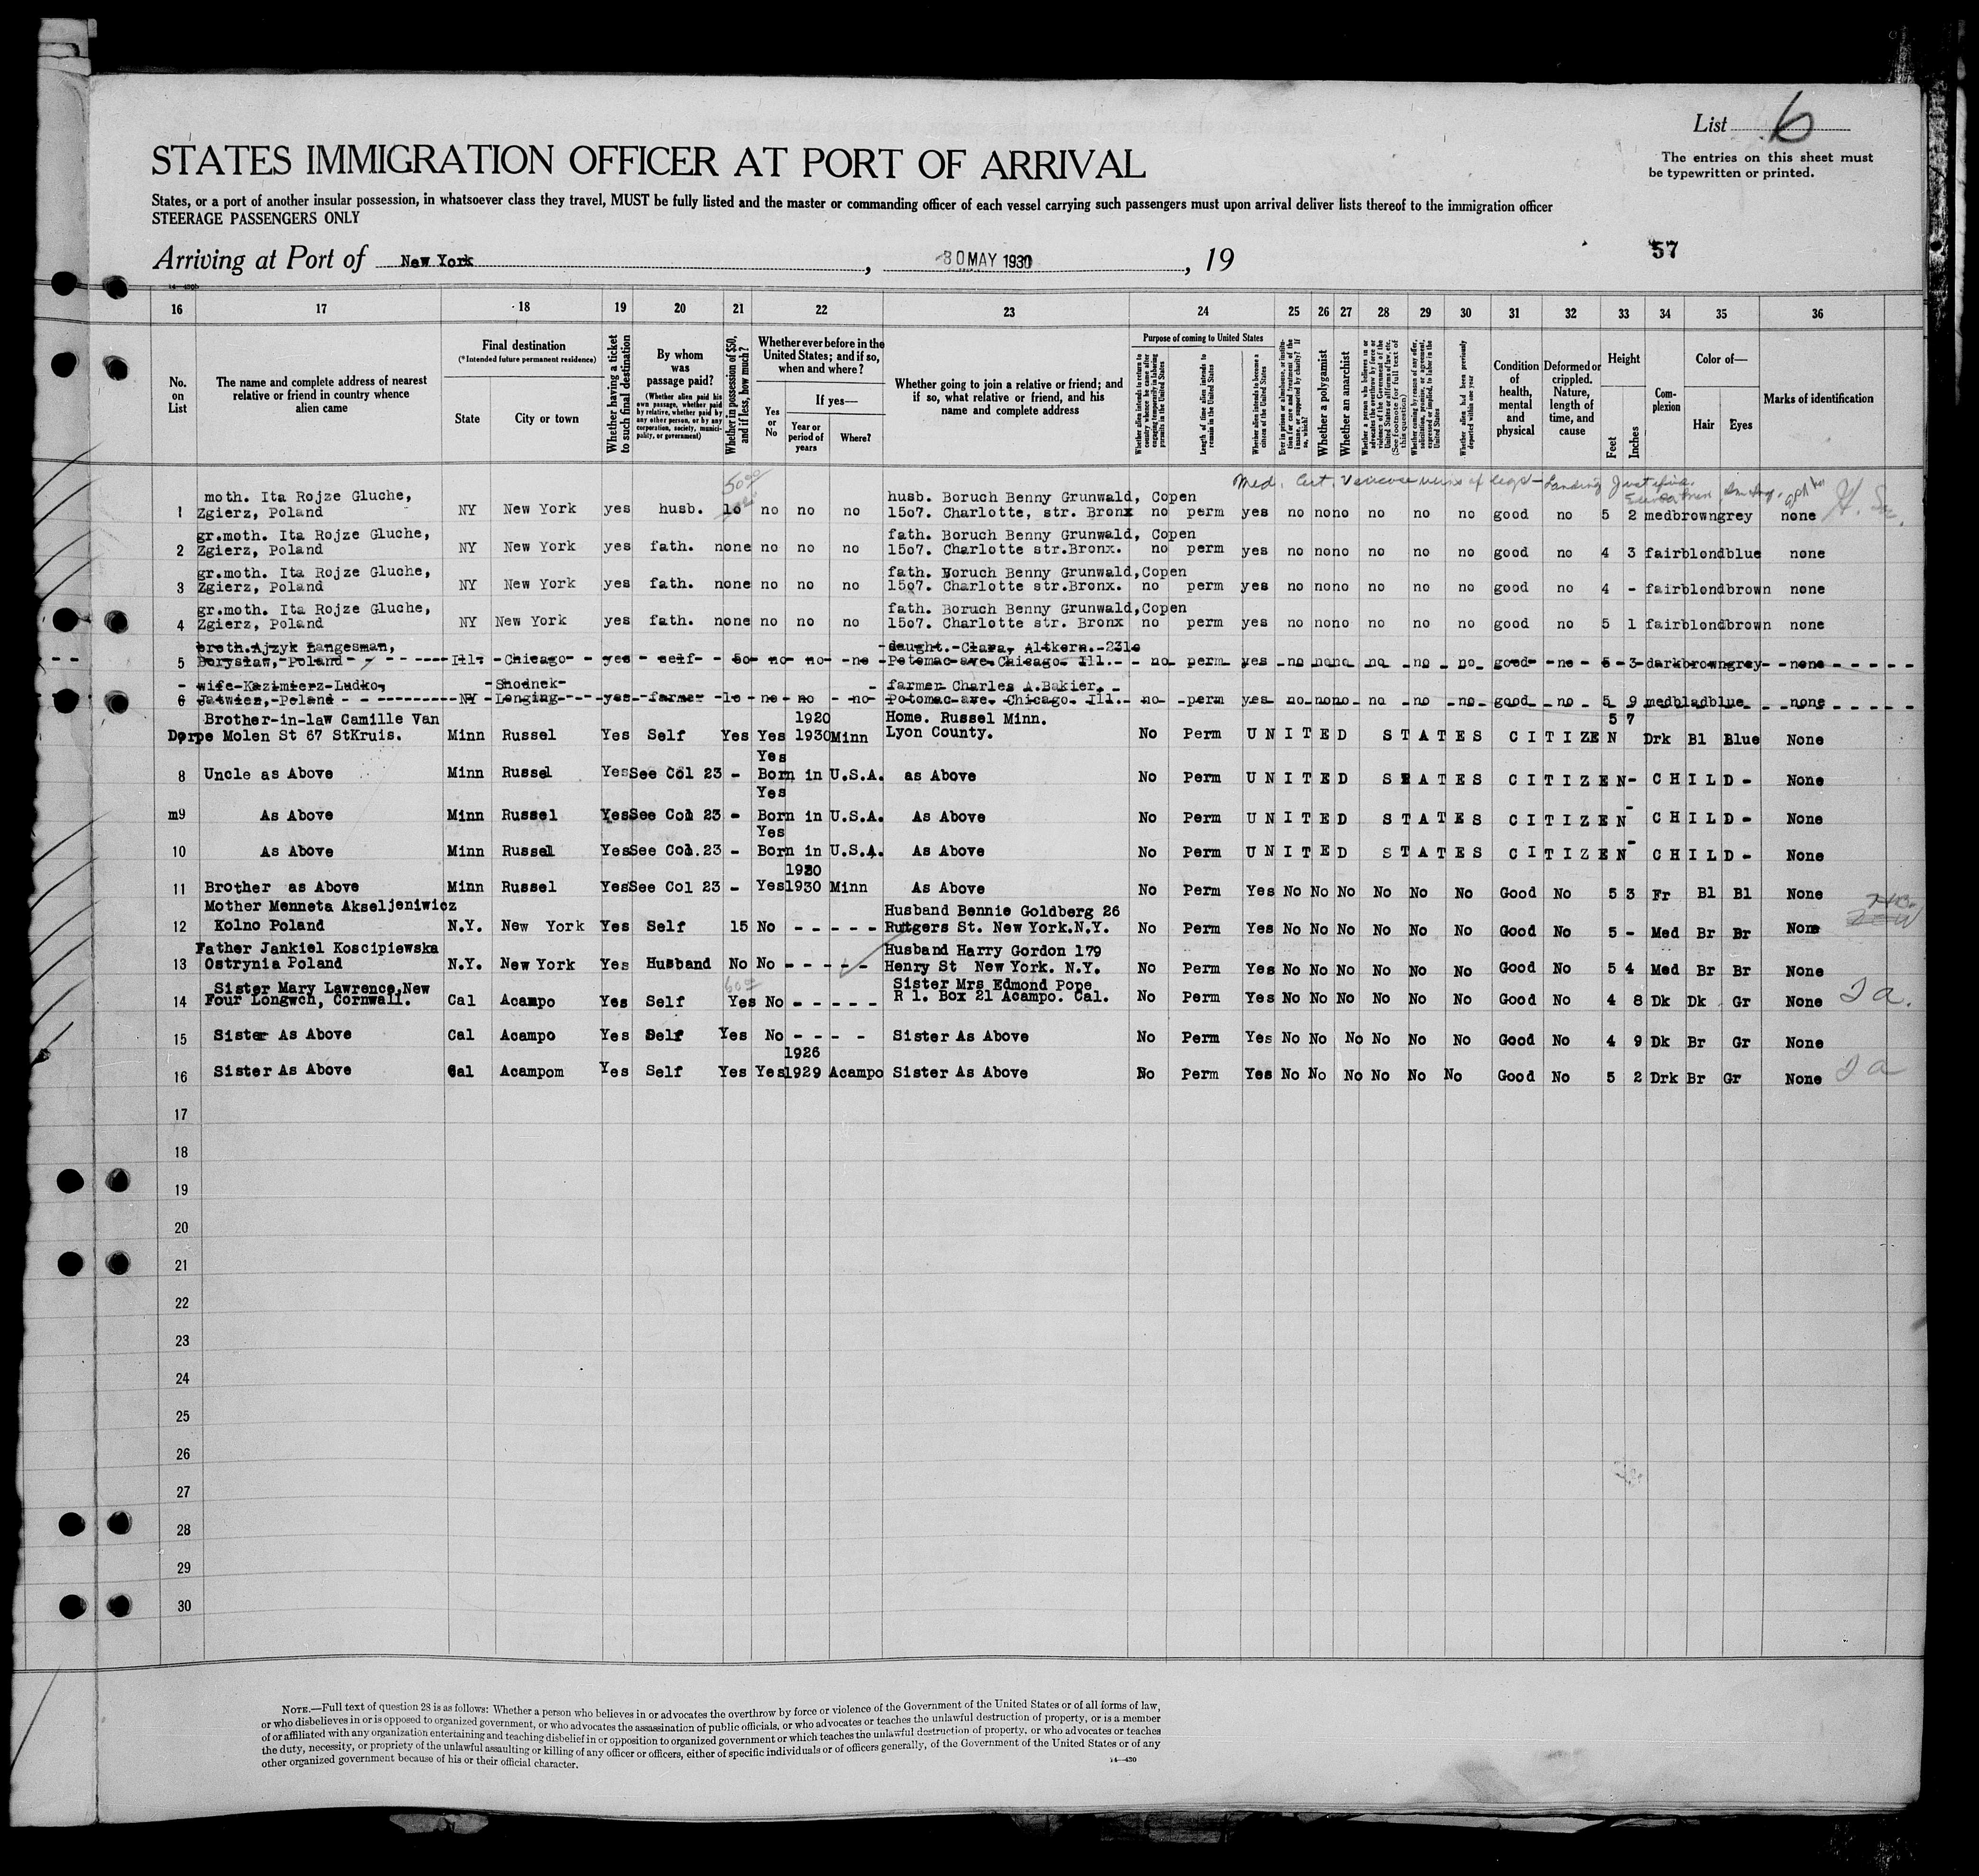 List 6
The entries on this sheet must
be typewritten or printed.
STATES IMMIGRATION OFFICER AT PORT OF ARRIVAL
States, or a port of another insular possession, in whatsoever class they travel, MUST be fully listed and the master or commanding officer of each vessel carrying such passengers must upon arrival deliver lists thereof to the immigration officer
STEERAGE PASSENGERS ONLY
Arriving at Port of New York, 30 MAY 1930, 19
57
14—430b
16 17 18 19 20 21 22 23 24 25 26 27 28 29 30 31 32 33 34 35 36
No. on List
The name and complete address of nearest relative or friend in country whence alien came
Final destination
(*Intended future permanent residence)
State
City or town
Whether having a ticket to such final destination
By whom was passage paid?
(Whether alien paid his own passage, whether paid by relative, whether paid by any other person, or by any corporation, society, municipality, or government)
Whether in possession of $50, and if less, how much?
Whether ever before in the United States; and if so, when and where?
Yes or No
If yes—
Year or period of years
Where?
Whether going to join a relative or friend; and if so, what relative or friend, and his name and complete address
Purpose of coming to United States
Whether alien intends to return to country whence he came after engaging temporarily in laboring pursuits in the United States
Length of time alien intends to remain in the United States
Whether alien intends to become a citizen of the United States
Ever in prison or almshouse, or institution for care and treatment of the insane, or supported by charity? If so, which?
Whether a polygamist
Whether an anarchist
Whether a person who believes in or advocates the overthrow by force or violence of the Government of the United States or all forms of law, etc. (See footnote for full text of this question)
Whether coming by reason of any offer, solicitation, promise, or agreement, expressed or implied, to labor in the United States
Whether alien had been previously deported within one year
Condition of health, mental and physical
Deformed or crippled. Nature, length of time, and cause
Height
Feet
Inches
Complexion
Color of—
Hair
Eyes
Marks of identification
50.00
Med. Cert. Varicose veins of legs - Landing
moth. Ita Rojze Gluche, husb. Boruch Benny Grunwald, Copen
1 Zgierz, Poland NY New York yes husb. 10 no no no 1507. Charlotte, str. Bronx no perm yes no no no no no no good no 5 2 med brown grey none
gr.moth. Ita Rojze Gluche, father. Boruch Benny Grunwald, Copen
2 Zgierz, Poland NY New York yes fath. none no no no 1507. Charlotte str.Bronx. no perm yes no no no no no no good no 4 3 fair blond blue none
gr.moth. Ita Rojze Gluche, fath. Boruch Benny Grunwald,Copen
3 Zgierz, Poland NY New York yes fath. none no no no 1507. Charlotte str.Bronx. no perm yes no no no no no no good no 4 - fair blond brown none
gr.moth. Ita Rojze Gluche, fath. Boruch Benny Grunwald,Copen
4 Zgierz, Poland NY New York yes fath. none no no no 1507. Charlotte str. Bronx no perm yes no no no no no no good no 5 1 fair blond brown none
broth.Ajzyk Langesman, daught. Clara, Altkern. 2310
5 Boryslaw, Poland Ill. Chicago yes self 50 no no no Potomac ave. Chicago. Ill. no perm yes no no no no no no good no 5 3 dark brown grey none
wife Kazimierz Ludko, Shodnek farmer Charles A.Bakier.
6 Jatwiez, Poland NY Longing yes farmer 10 no no no Potomac ave. Chicago. Ill. no perm yes no no no no no no good no 5 9 med blad blue none
Brother-in-law Camille Van 1920 Home. Russel Minn. 5 7
Dorpe Molen St 67 StKruis. Minn Russel Yes Self Yes Yes 1930 Minn Lyon County. No Perm UNITED STATES CITIZEN Drk Bl Blue None
Yes
8 Uncle as Above Minn Russel Yes See Col 23 - Born in U.S.A. as Above No Perm UNITED STATES CITIZEN- CHILD- None
Yes
m9 As Above Minn Russel Yes See Col 23 - Born in U.S.A. As Above No Perm UNITED STATES CITIZEN- CHILD- None
Yes
10 As Above Minn Russel Yes See Col.23 - Born in U.S.A. As Above No Perm UNITED STATES CITIZEN- CHILD- None
1920
11 Brother as Above Minn Russel Yes See Col 23 - Yes 1930 Minn As Above No Perm Yes No No No No No No Good No 5 3 Fr Bl Bl None
Mother Menneta Akseljeniwicz Husband Bennie Goldberg 26
12 Kolno Poland N.Y. New York Yes Self 15 No - - - - - Rutgers St. New York.N.Y. No Perm Yes No No No No No No Good No 5 - Med Br Br None
Father Jankiel Koscipiewska Husband Harry Gordon 179
13 Ostrynia Poland N.Y. New York Yes Husband No No - - - - - Henry St New York. N.Y. No Perm Yes No No No No No No Good No 5 4 Med Br Br None
Sister Mary Lawrence,New 60.00 Sister Mrs Edmond Pope
14 Four Longwch, Cornwall. Cal Acampo Yes Self Yes No - - - - - R 1. Box 21 Acampo. Cal. No Perm Yes No No No No No No Good No 4 8 Dk Dk Gr None
15 Sister As Above Cal Acampo Yes Self Yes No - - - - Sister As Above No Perm Yes No No No No No No Good No 4 9 Dk Br Gr None
1926
16 Sister As Above Cal Acampom Yes Self Yes Yes 1929 Acampo Sister As Above No Perm Yes No No No No No No Good No 5 2 Drk Br Gr None
17
18
19
20
21
22
23
24
25
26
27
28
29
30
NOTE.—Full text of question 28 is as follows: Whether a person who believes in or advocates the overthrow by force or violence of the Government of the United States or of all forms of law,
or who disbelieves in or is opposed to organized government, or who advocates the assassination of public officials, or who advocates or teaches the unlawful destruction of property, or is a member
of or affiliated with any organization entertaining and teaching disbelief in or opposition to organized government or which teaches the unlawful destruction of property, or who advocates or teaches
the duty, necessity, or propriety of the unlawful assaulting or killing of any officer or officers, either of specific individuals or of officers generally, of the Government of the United States or of any
other organized government because of his or their official character.
14—430